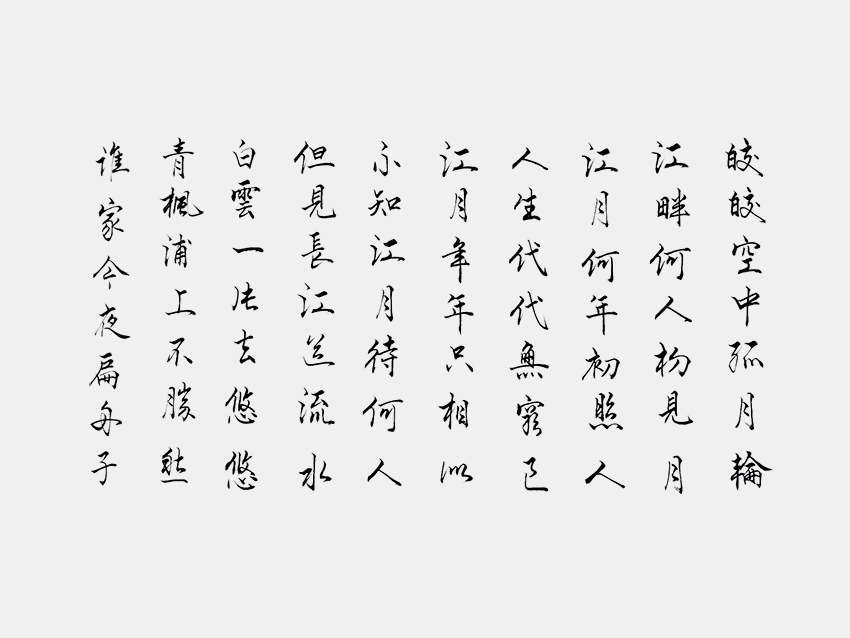 皎皎空中孤月輪
江畔何人初見月
江月何年初照人
人生代代無窮已
江月年年只相似
不知江月待何人
但見長江送流水
白雲一片去悠悠
青楓浦上不勝愁
誰家今夜扁舟子